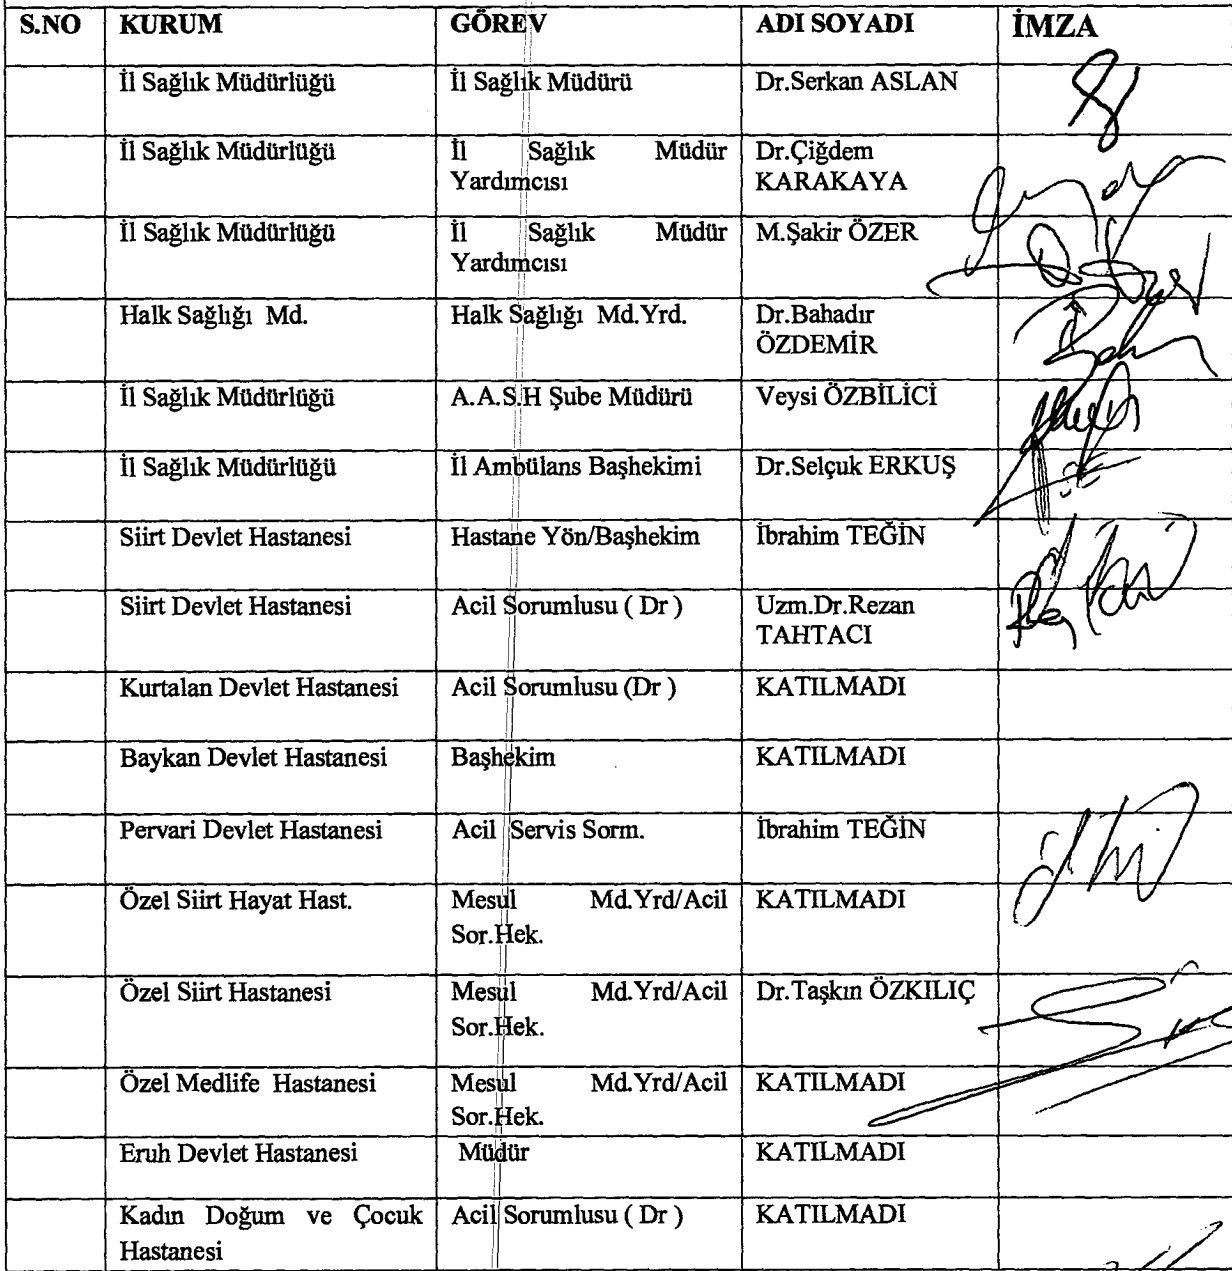 S.NO KURUM GÖREV ADI SOYADI İMZA
İl Sağlık Müdürlüğü İl Sağlık Müdürü Dr.Serkan ASLAN
İl Sağlık Müdürlüğü İl Sağlık Müdür Dr.Çiğdem
Yardımcısı KARAKAYA
İl Sağlık Müdürlüğü İl Sağlık Müdür M.Şakir ÖZER
Yardımcısı
Halk Sağlığı Md. Halk Sağlığı Md.Yrd. Dr.Bahadır
ÖZDEMİR
İl Sağlık Müdürlüğü A.A.S.H Şube Müdürü Veysi ÖZBİLİCİ
İl Sağlık Müdürlüğü İl Ambulans Başhekimi Dr.Selçuk ERKUŞ
Siirt Devlet Hastanesi Hastane Yön/Başhekim İbrahim TEĞİN
Siirt Devlet Hastanesi Acil Sorumlusu ( Dr ) Uzm.Dr.Rezan
TAHTACI
Kurtalan Devlet Hastanesi Acil Sorumlusu (Dr ) KATILMADI
Baykan Devlet Hastanesi Başhekim KATILMADI
Pervari Devlet Hastanesi Acil Servis Sorm. İbrahim TEĞİN
Özel Siirt Hayat Hast. Mesul Md.Yrd/Acil KATILMADI
Sor.Hek.
Özel Siirt Hastanesi Mesul Md.Yrd/Acil Dr.Taşkın ÖZKILIÇ
Sor.Hek.
Özel Medlife Hastanesi Mesul Md.Yrd/Acil KATILMADI
Sor.Hek.
Eruh Devlet Hastanesi Müdür KATILMADI
Kadın Doğum ve Çocuk Acil Sorumlusu ( Dr ) KATILMADI
Hastanesi